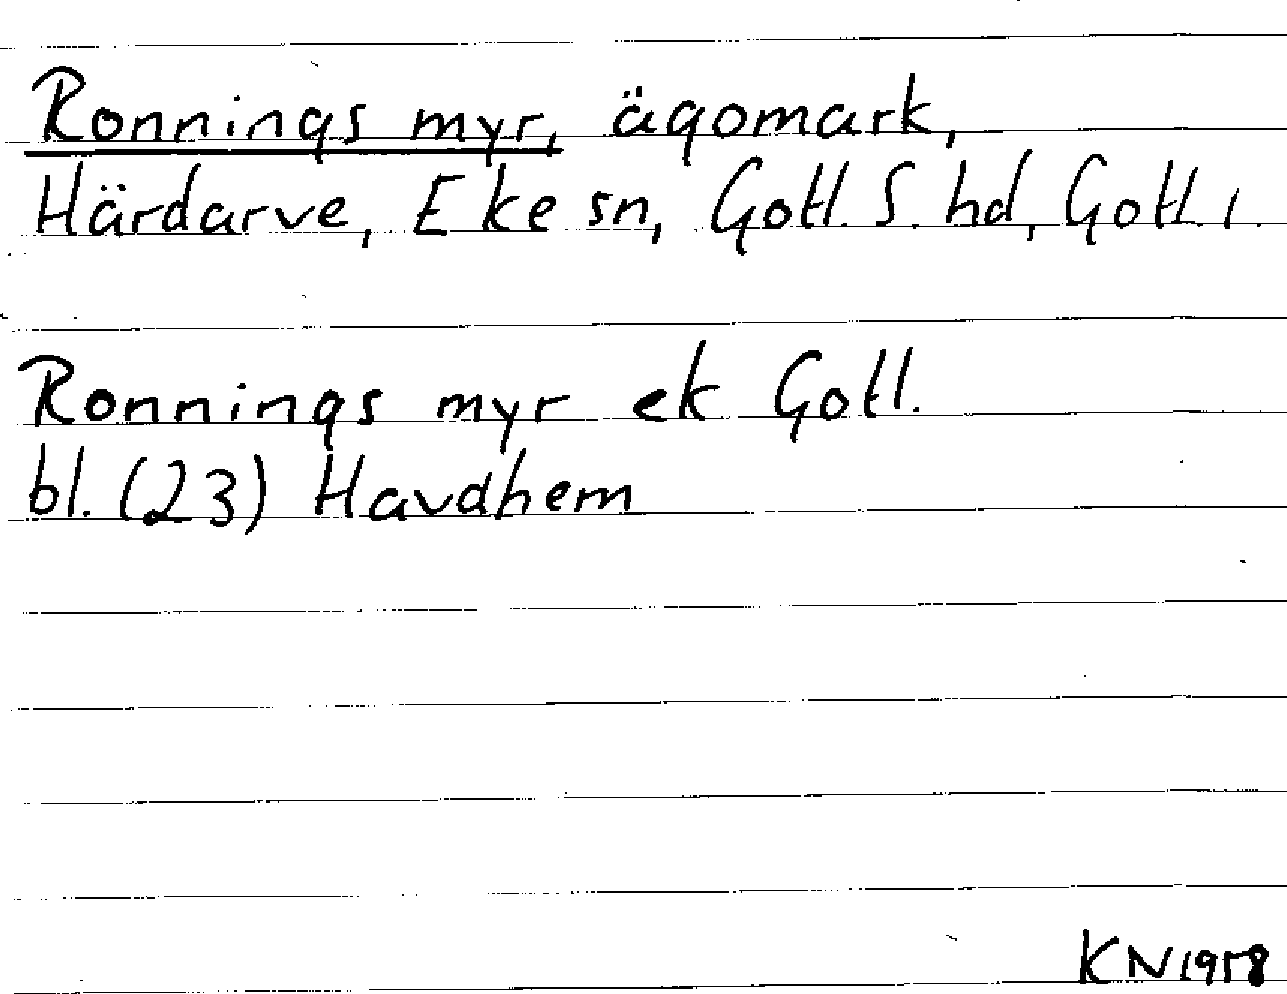 Ronnings myr, ägomark,
Härdarve, Eke sn, Gotl. S. hd, Gotl. l.
Ronnings myr ek Gotl.
bl. (23) Havdhem
KN 1958